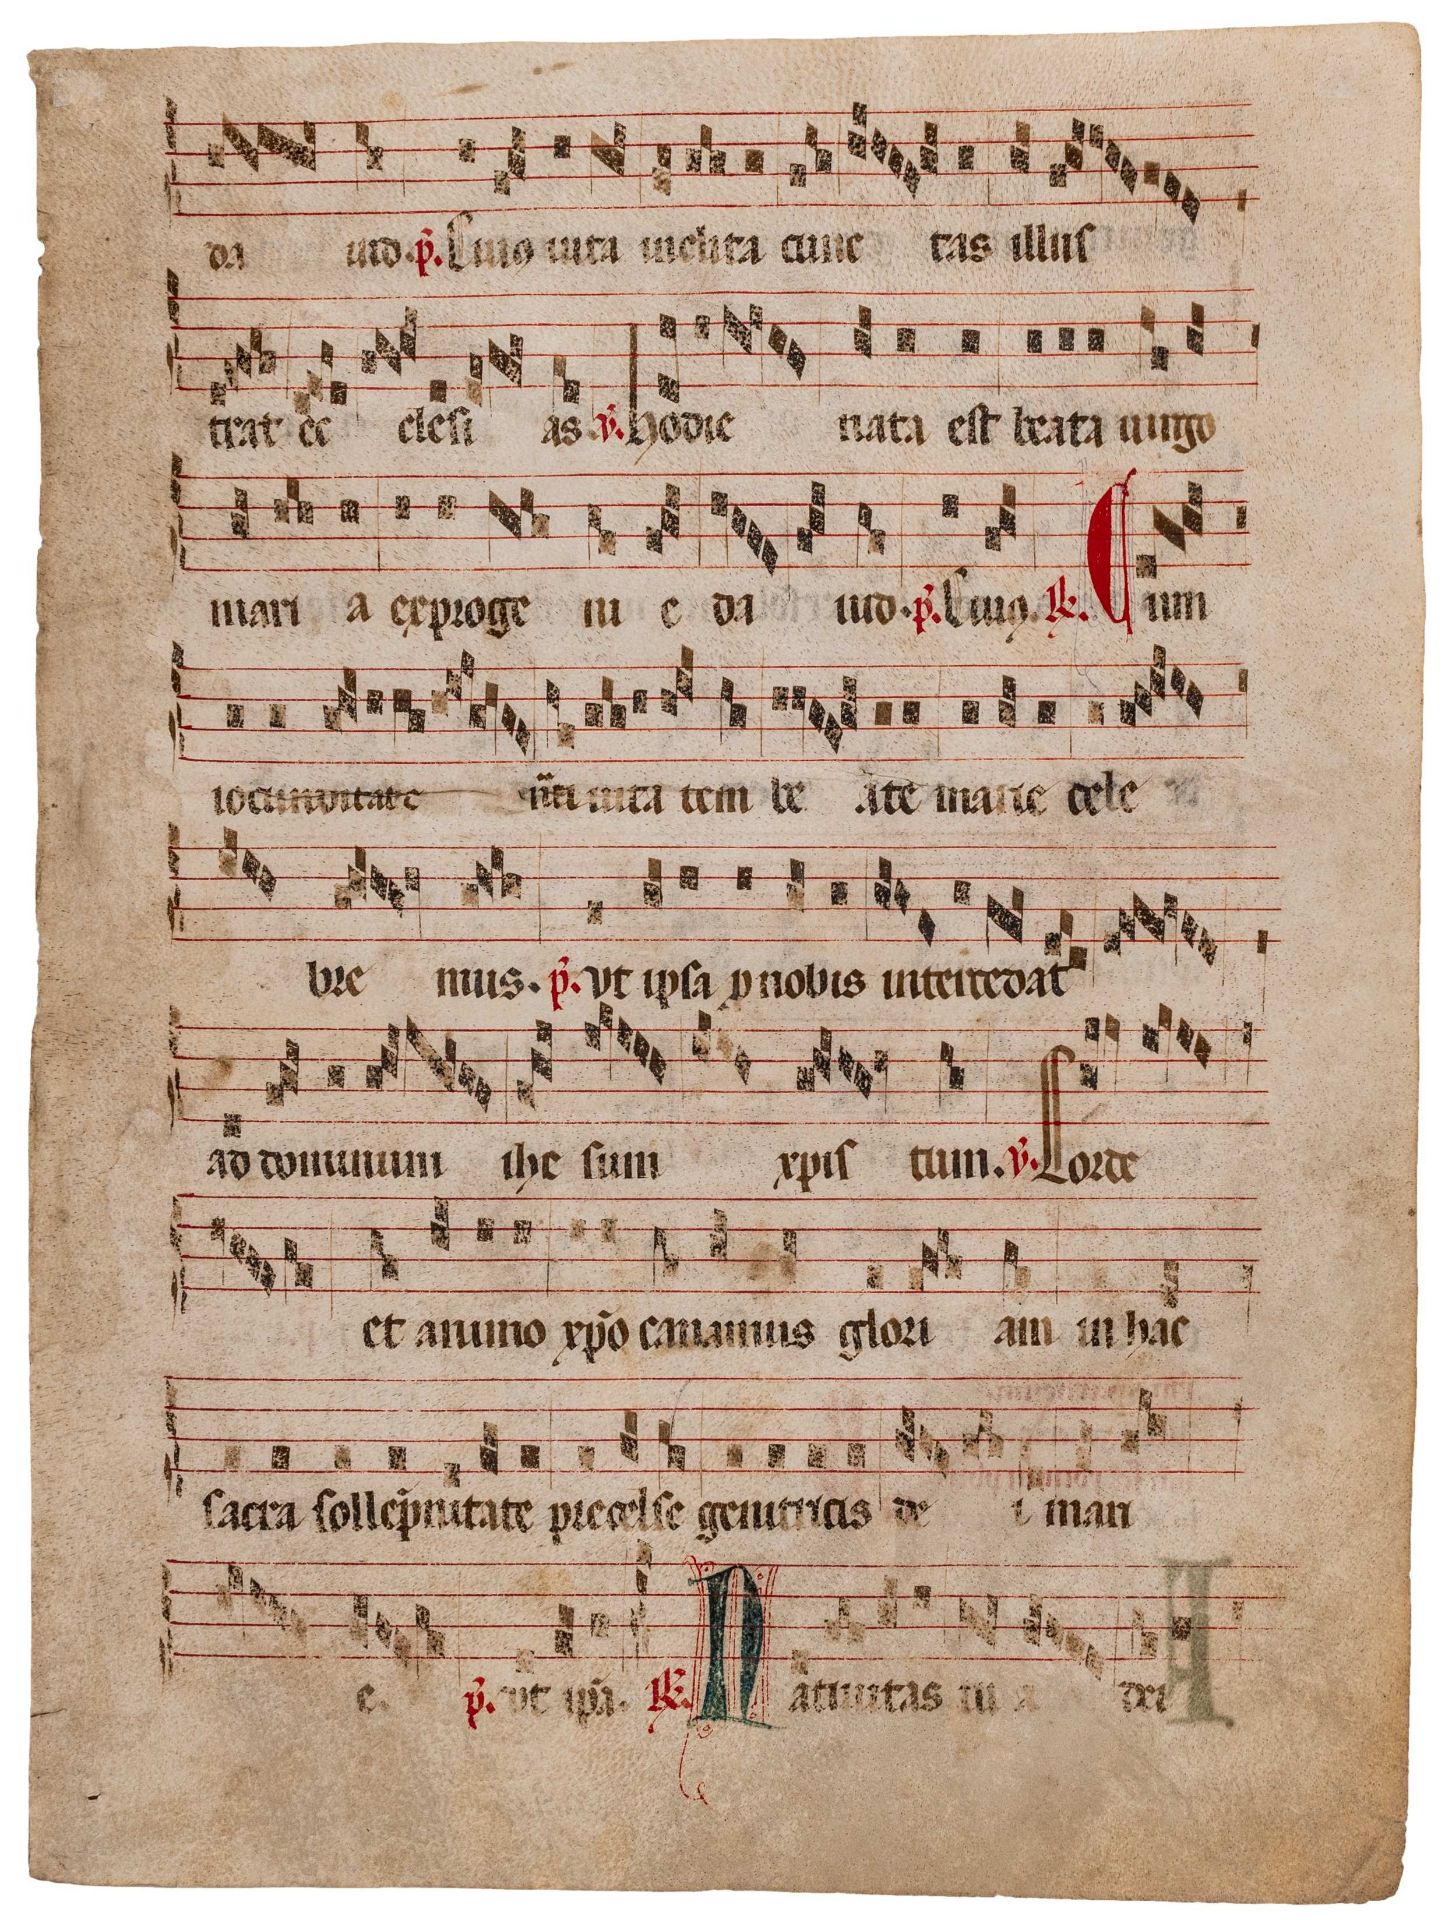 da uid. p. Cuius uita inclita cunc tas illus
trat ec clesi as. v. Hodie nata est beata uirgo
mari a ex proge ni e da uid. p. Cuius. R. Cum
iocunditate natiuita tem be ate marie cele
bre mus. p. ut ipsa p nobis intercedat
ad dominum ihe sum xpis tum. v. Corde
et animo xpo canamus glori am in hac
sacra sollepnitate precelse genitricis de i mari
e. p. ut ipa. R. Natiuitas tu a dei